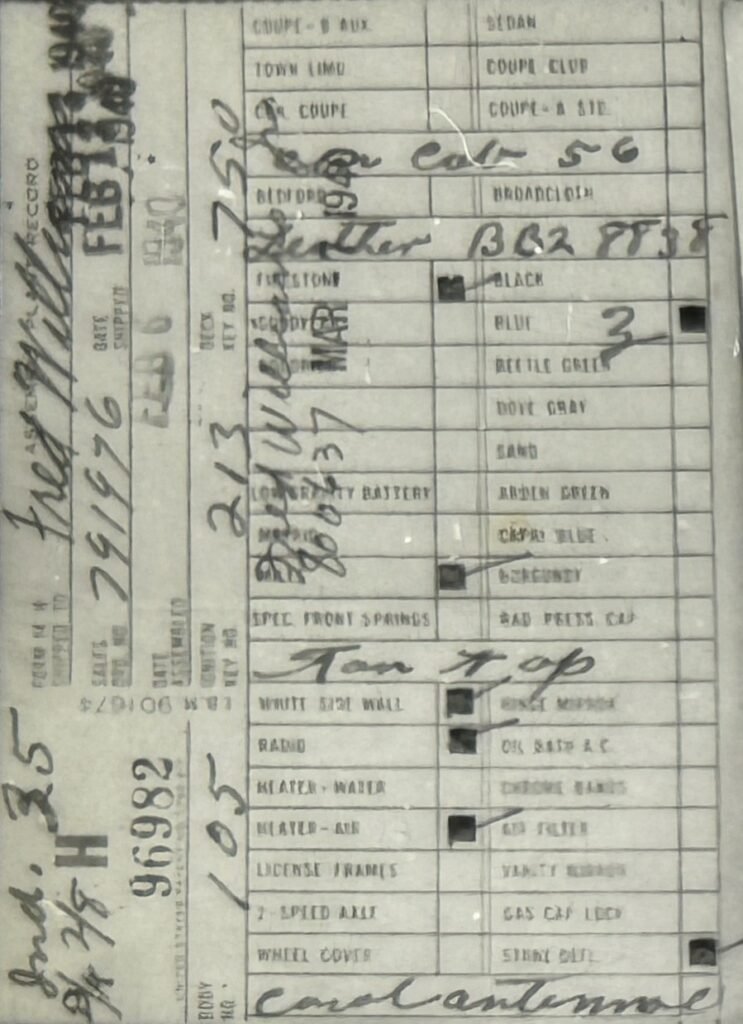 COUPE-B AUX. SEDAN
TOWN LIMO COUPE CLUB
COUPE COUPE-B STD.
Colr 56
BEDFORD BROADCLOTH
Leather BB2 8838
FIRESTONE BLACK
BLUE 3
BEETLE GREEN
DOVE GRAY
SAND
LOW GRAVITY BATTERY ARDEN GREEN
CAPRI BLUE
BURGUNDY
SPEC. FRONT SPRINGS RAD PRESS CAP
Tan top
WHITE SIDE WALL HINGE MIRROR
RADIO OIL BATH A.C.
HEATER-WATER CHROME BANDS
HEATER-AIR AIR FILTER
LICENSE FRAMES VANITY MIRROR
2-SPEED AXLE GAS CAP LOCK
WHEEL COVER
Cowl antennae
RECORD
FEB 13 1940
Fred
SHIPPED TO
SALES ORD. NO. 791976 DATE SHIPPED
DATE ASSEMBLED FEB 6 1940
IGNITION KEY NO. 213 DECK KEY NO. 750
I.B.M 901674
Ind. 35
2/8 H
96982
BODY NO. 105
800637
MAR 1940